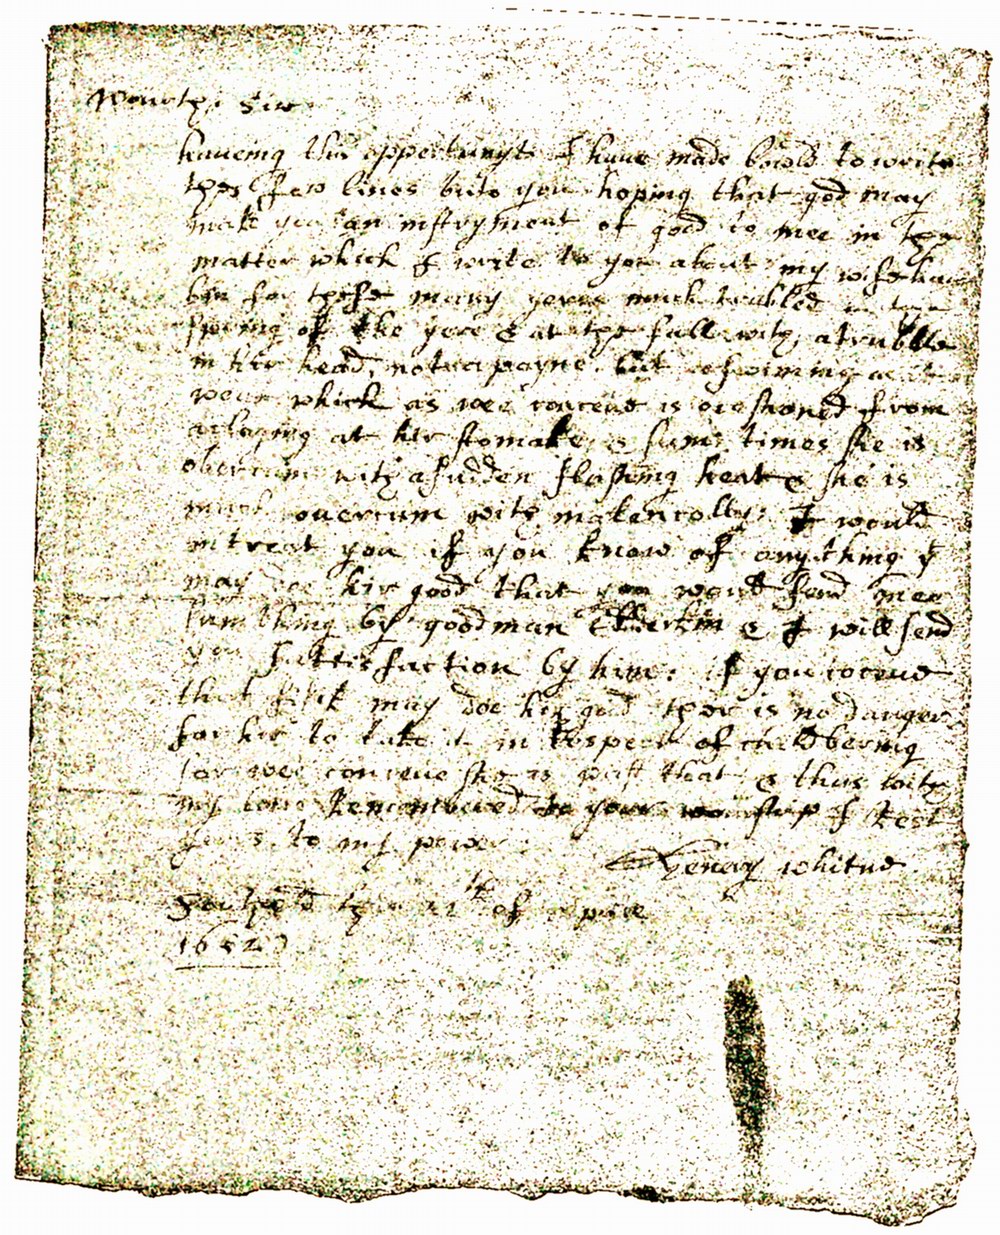 Wourthi Sir
haueing this oppertunyti I haue made bould to write
thes few lines unto you hoping that god may
make you an instryment of good to mee in the
matter which I write to you about my wife hau
bin for these many yeres much trubled in the
spring of the yere & at the fall with a trubble
in hir head, not a payne but a swimming
which as wee conceue is from
at hir stomake & sum times she is
ouercum with a sudden flashing heat & she is
much ouercum with malencolly: I would
intreat you if you know of anything yt
may doe hir good that you would send mee
sum thing by goodman & I will send
you sattisfaction by him: if you conceue
that may doe hir good ther is no danger
for hir to take it in respect of child bering
for wee conceue she is past that & thus with
my loue to your I rest
yours to my power
Henary whitne
this 12th of
1652